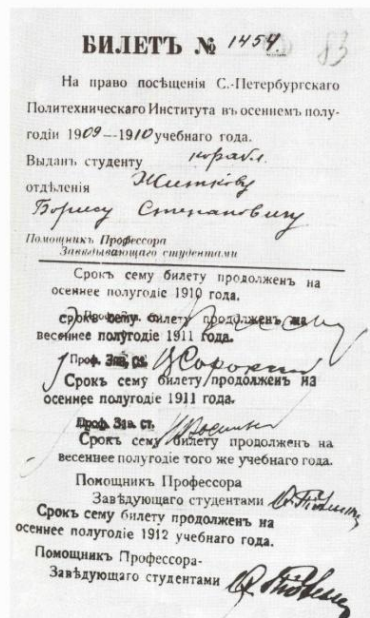 БИЛЕТЪ № 1454.
83
На право посѣщенія С.-Петербургскаго
Политехническаго Института въ осеннемъ полу-
годіи 1909-1910 учебнаго года.
Выданъ студенту корабл.
отдѣленія Житкову
Борису Степановичу
Помощникъ Профессора
Завѣдывающаго студентами
Срокъ сему билету продолженъ на
осеннее полугодіе 1910 года.
срокъ сему билету продолженъ на
весеннее полугодіе 1911 года.
Проф. Зав. ст.
Срокъ сему билету продолженъ на
осеннее полугодіе 1911 года.
Проф. Зав. ст.
Срокъ сему билету продолженъ на
весеннее полугодіе того же учебнаго года.
Помощникъ Профессора
Завѣдующаго студентами
Срокъ сему билету продолженъ на
осеннее полугодіе 1912 учебнаго года.
Помощникъ Профессора-
Завѣдующаго студентами